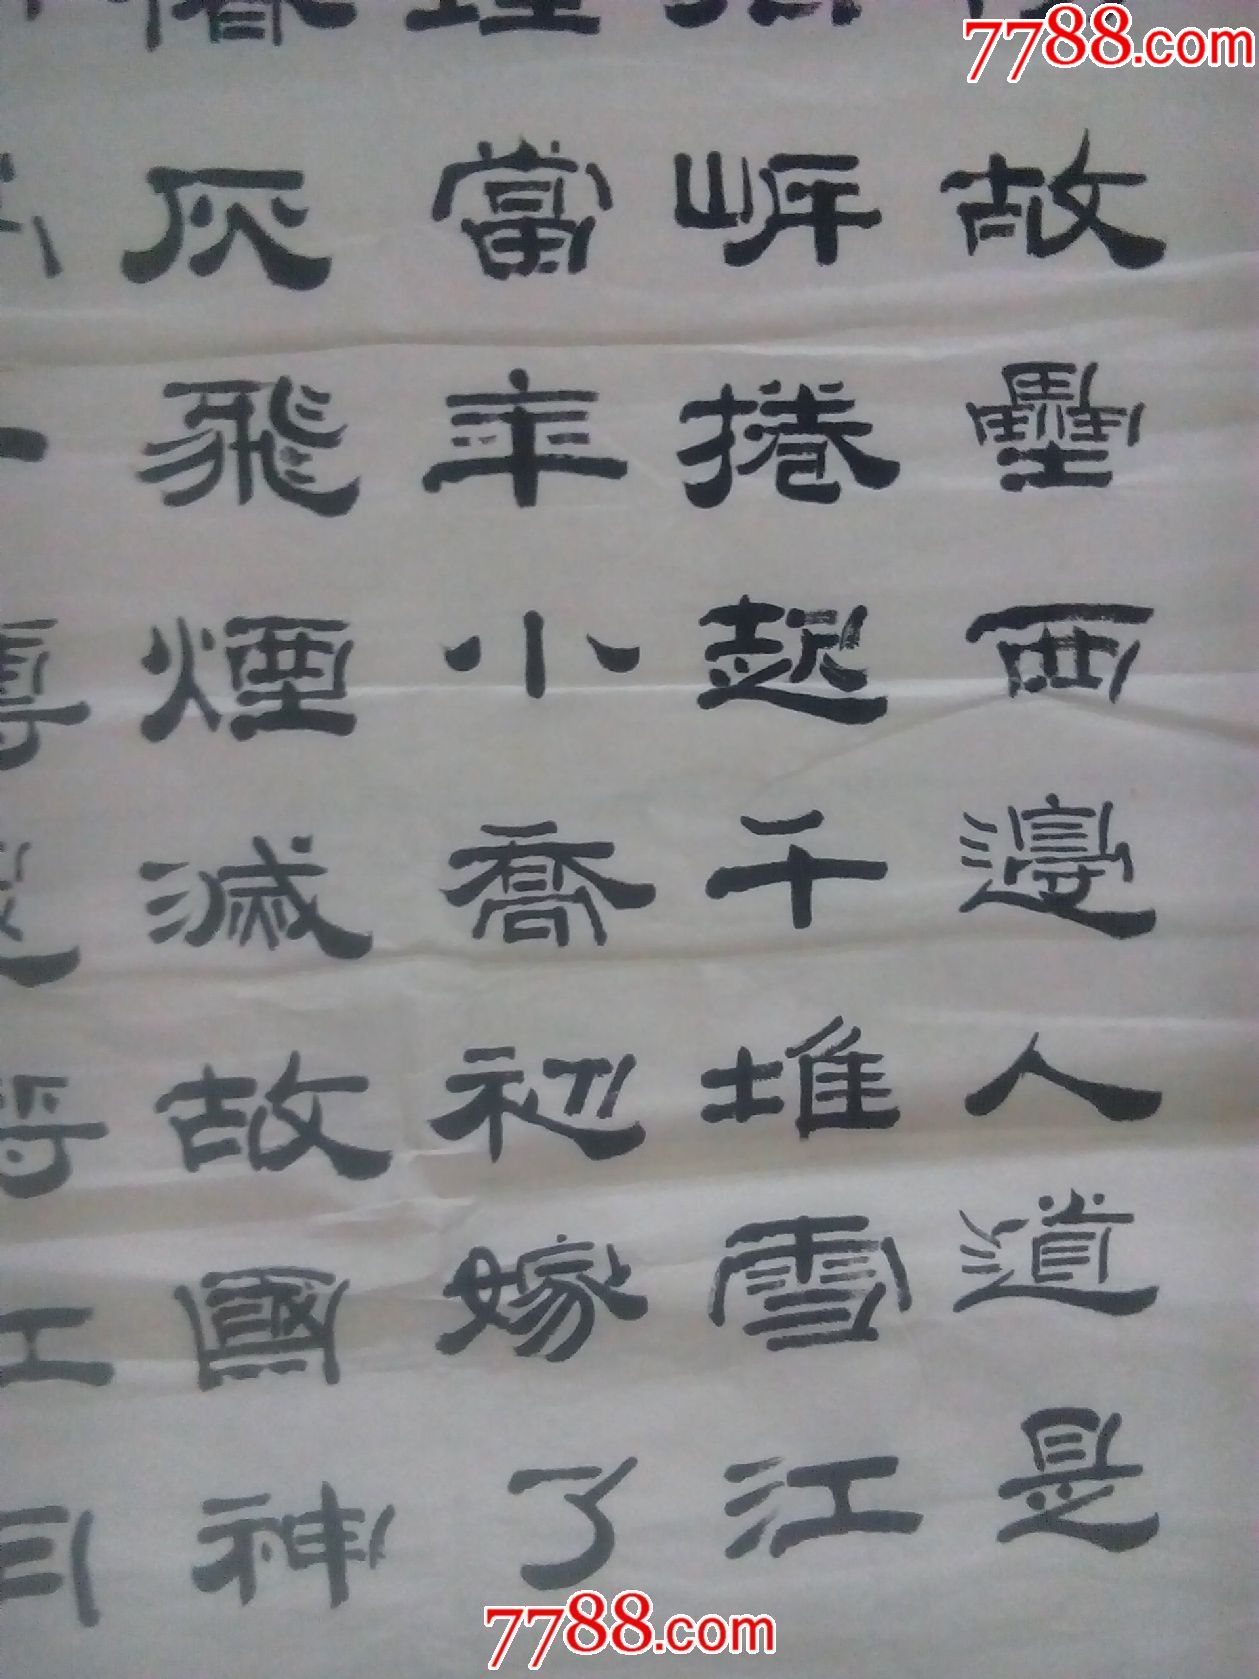 7788.com
故壘西邊人道是
岸捲起千堆雪江
當年小喬初嫁了
灰飛煙滅故國神
7788.com